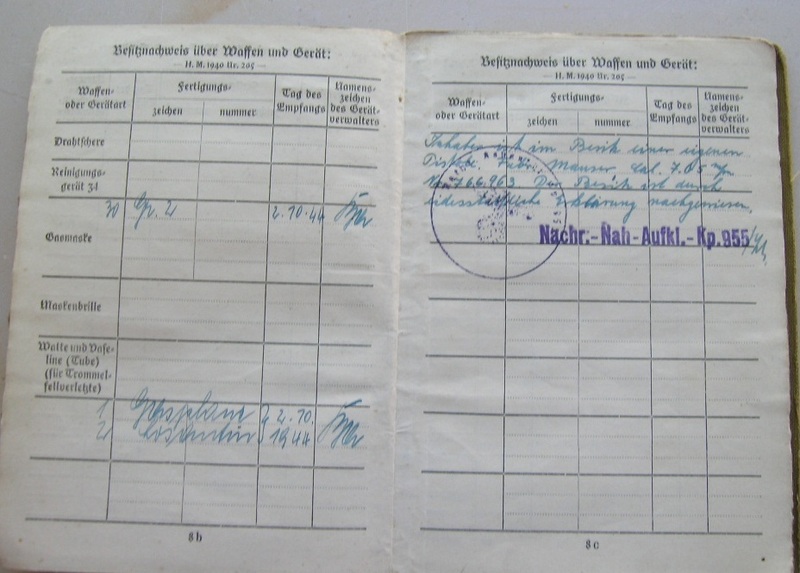 Besitznachweis über Waffen und Gerät:
— H. M. 1940 Nr. 205 —
Waffen- oder Gerätart
Fertigungs-
zeichen
nummer
Tag des Empfangs
Namens-zeichen des Gerät-verwalters
Drahtschere
Reinigungs-gerät 34
30 Gr. 2 2.10.44
Gasmaske
Maskenbrille
Watte und Vase-
line (Tube)
(für Trommel-
fellverletzte)
1 Gasplane 2.10.
2 Losantin 1944
8b
Besitznachweis über Waffen und Gerät:
— H. M. 1940 Nr. 205 —
Waffen- oder Gerätart
Fertigungs-
zeichen
nummer
Tag des Empfangs
Namens-zeichen des Gerät-verwalters
Inhaber ist im Besitz einer eigenen
Pistole Mauser Cal. 7.65 m/m
No. 166.963. Der Besitz ist durch
eidesstattliche Erklärung nachgewiesen.
Nachr.-Nah-Aufkl.-Kp. 955
8c